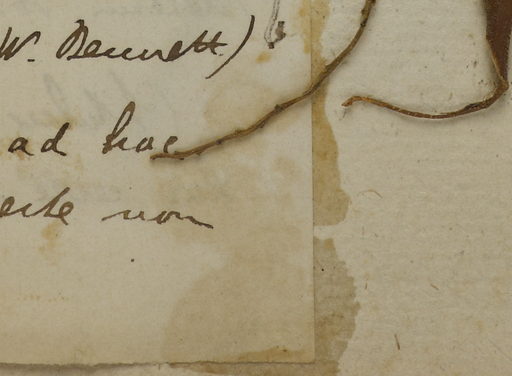 W. Bennett)
ad hoc
non